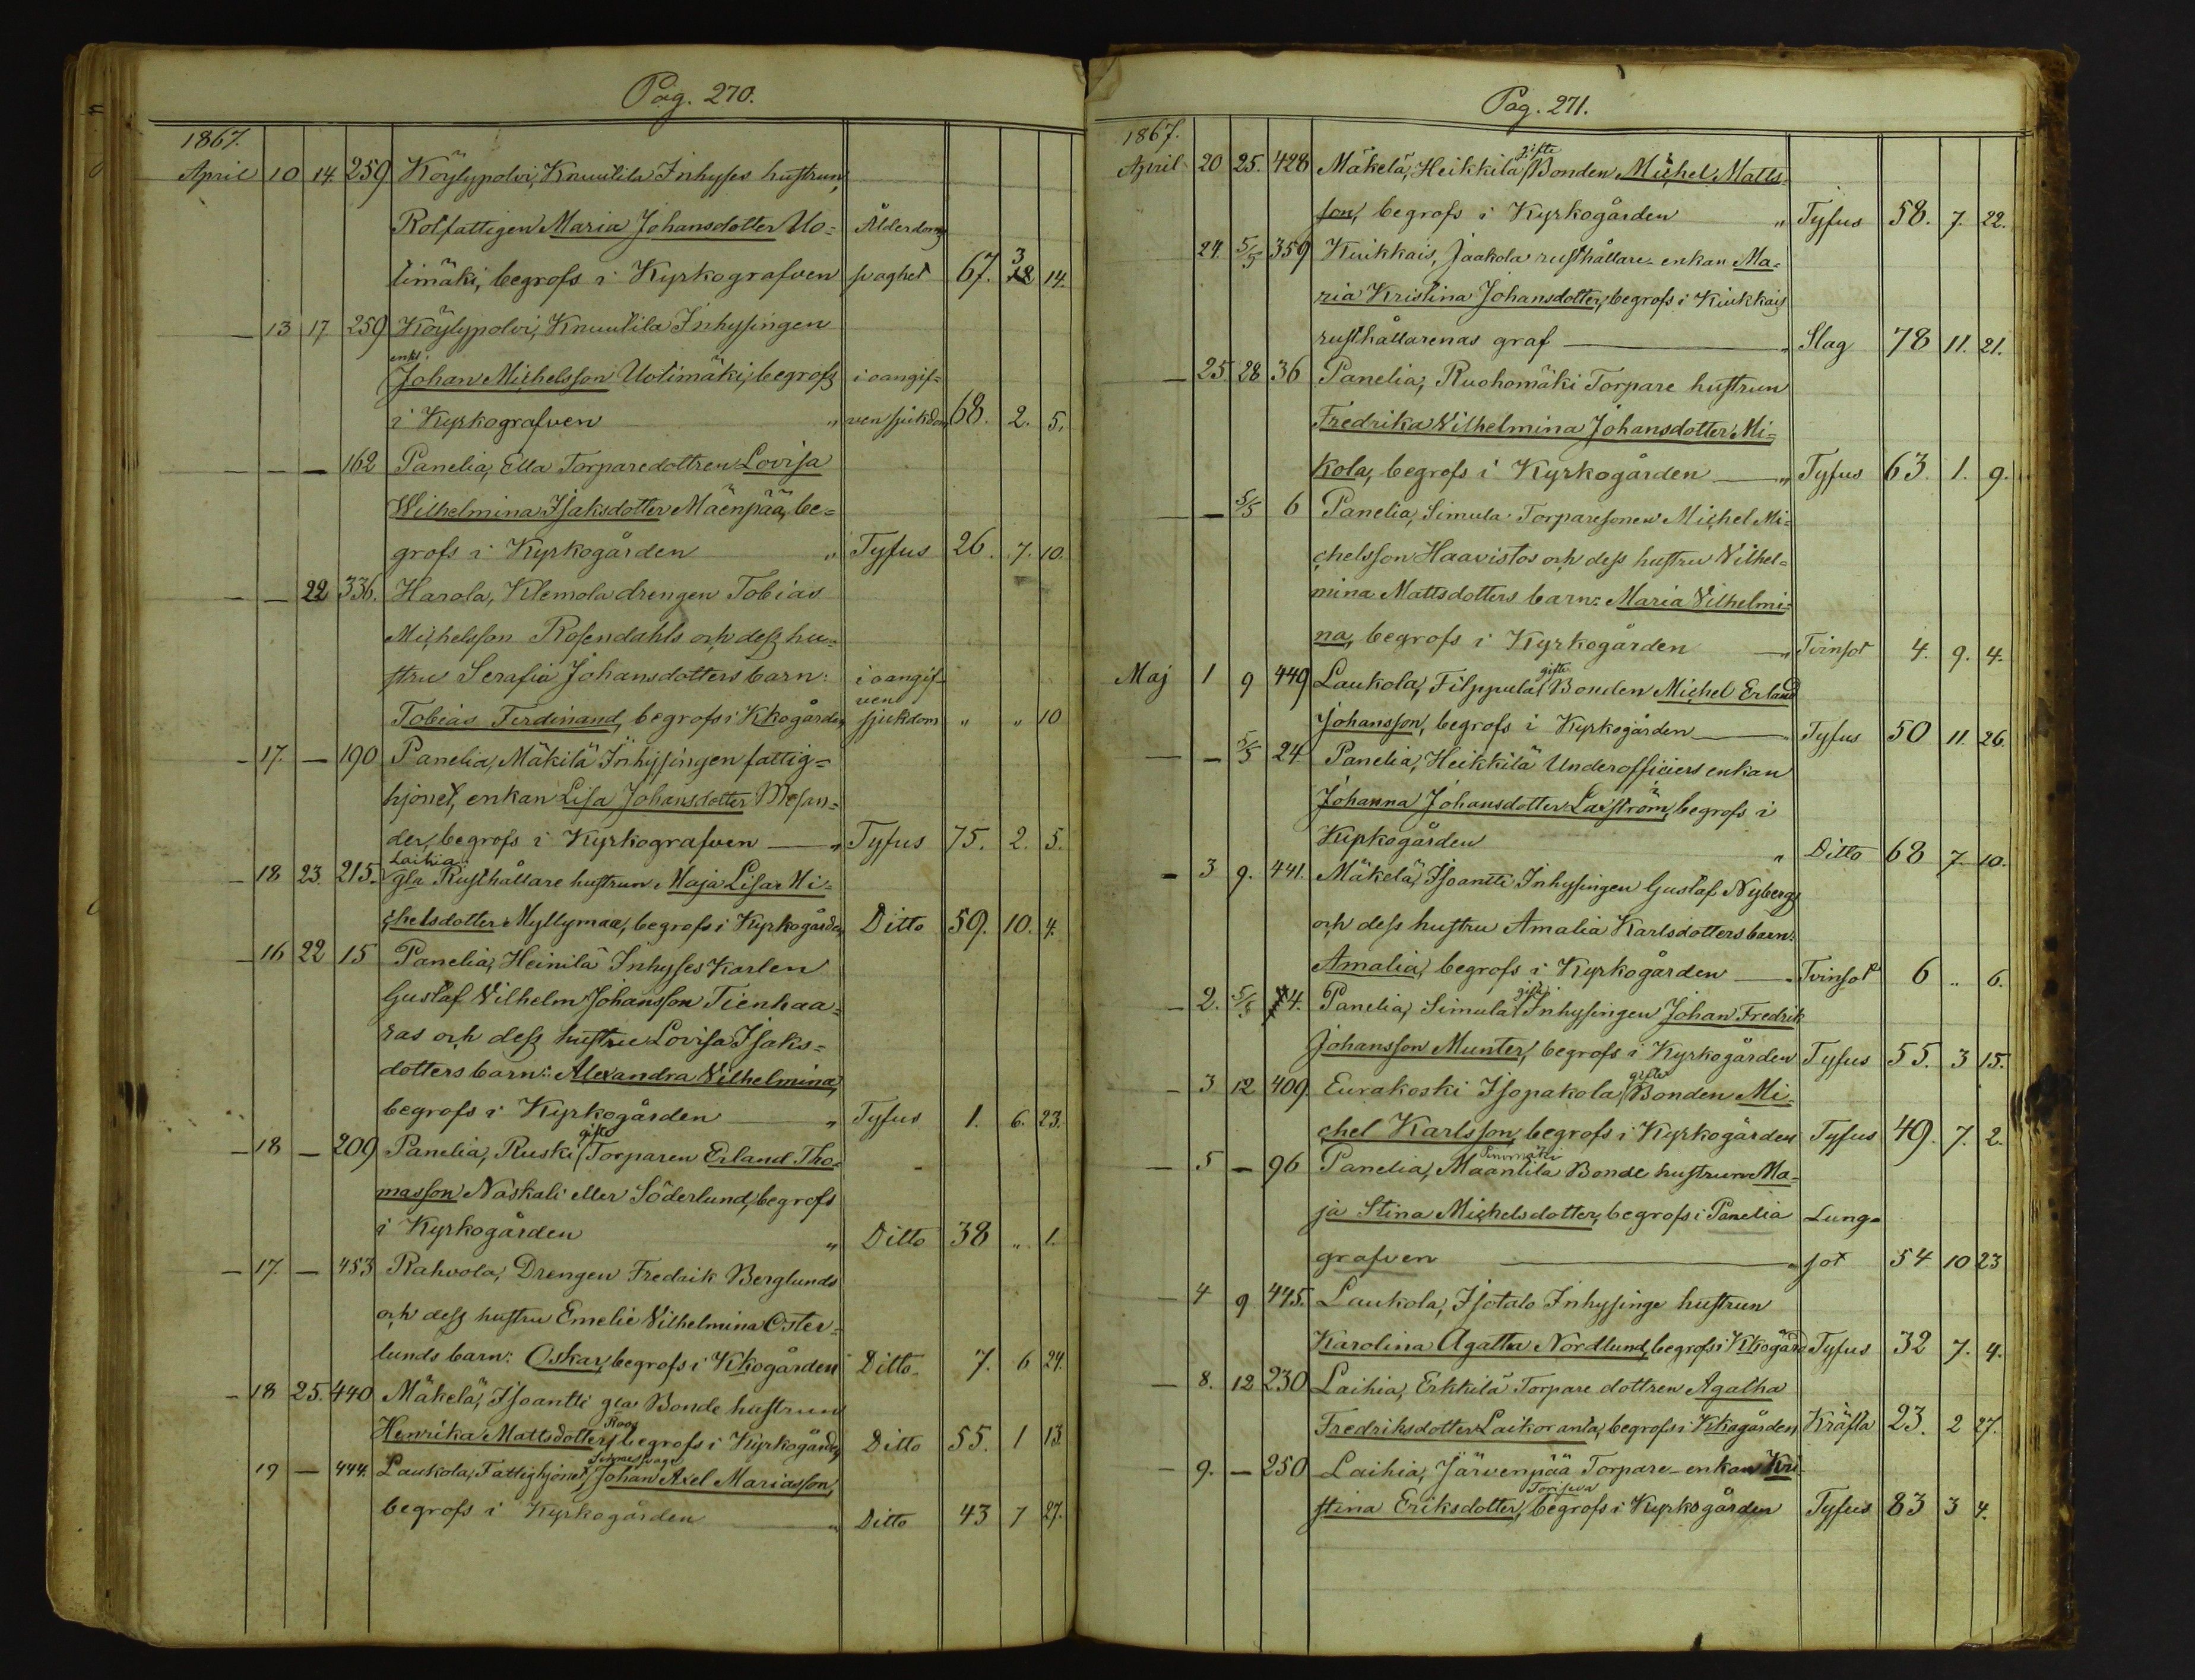 Pag. 270.
1867.
April 10 14. 259 Köylypolvi, Knuutila Inhyses hustrun,
Rotfattigen Maria Johansdotter Uo= Ålderdoms
timäki, begrofs i Kyrkografven svaghet 67. 3 14.
— 13 17 259 Köylypolvi, Knuutila Inhysingen
enkl.
Johan Michelsson Uotimäki, begrofs i oangif=
i Kyrkografven " ven sjukdom 68. 2. 5.
— — — 162 Panelia, Ella Torparedottren Lovisa
Wilhelmina Isaksdotter Mäenpää, be=
grofs i Kyrkogården " Tyfus 26. 7. 10.
— — 22 336. Harola, Klemola drengen Tobias
Michelsson Rosendahls och dess hu=
stru Serafia Johansdotters barn: i oangif=
ven
Tobias Ferdinand, begrofs i Kkogården sjukdom " " 10
— 17. — 190 Panelia, Mäkilä Inhysingen fattig=
hjonet, enkan Lisa Johansdotter Mesan=
der, begrofs i Kyrkografven — " Tyfus 75. 2. 5.
Laihia
— 18 23. 215. gla Rusthållare hustrun Maja Lisa Mi=
chelsdotter Myllymaa, begrofs i Kyrkogården Ditto 59. 10. 4.
— 16 22 15 Panelia, Heinilä Inhyses Karlen
Gustaf Vilhelm Johansson Tienhaa=
ras och dess hustru Lovisa Isaks=
dotters barn: Alexandra Vilhelmina,
begrofs i Kyrkogården — " Tyfus 1. 6. 23.
gifte
— 18 — 209 Panelia, Ruski Torparen Erland Tho=
masson Näskali eller Söderlund, begrofs
i Kyrkogården " Ditto 38 " 1.
— 17. — 453 Rahvola, Drengen Fredrik Berglunds
och dess hustru Emelie Vilhelmina Öster=
lunds barn: Oskar, begrofs i Kkogården Ditto 7. 6 24.
— 18 25. 440 Mäkelä, Isoantti gla Bonde hustrun
Roos
Henrika Mattsdotter, begrofs i Kyrkogården Ditto 55. 1 13.
Sinnessvage
19 — 444. Laukola, Fattighjonet, Johan Axel Mariasson,
begrofs i Kyrkogården — " Ditto 43 7 27.
Pag. 271.
1867.
gifte
April 20 25. 428 Mäkelä, Heikkilä Bonden Michel Matts=
son, begrofs i Kyrkogården " Tyfus 58. 7. 22.
24. 5/5 359 Kiukkais, Jaakola rusthållare enkan Ma=
ria Kristina Johansdotter, begrofs i Kiukkais
rusthållarenas graf — " Slag 78 11. 21.
— 25 28 36 Panelia, Ruohomäki Torpare hustrun
Fredrika Vilhelmina Johansdotter Mi=
kola, begrofs i Kyrkogården — " Tyfus 63. 1. 9.
— — 5/5 6 Panelia, Simula Torparesonen Michel Mi=
chelsson Haavistos och dess hustru Vilhel=
mina Mattsdotters barn: Maria Vilhelmi=
na, begrofs i Kyrkogården — " Tvinsot 4. 9. 4.
gifte
Maj 1 9 449 Laukola, Filppula Bonden Michel Erland
Johansson, begrofs i Kyrkogården — " Tyfus 50 11. 26.
— — 5/5 24 Panelia, Heikkilä Underofficiers enkan
Johanna Johansdotter Laxström, begrofs i
Kyrkogården " Ditto 68 7. 10.
— 3 9. 441. Mäkelä, Isoantti Inhysingen Gustaf Nybergs
och dess hustru Amalia Karlsdotters barn:
Amalia, begrofs i Kyrkogården — " Tvinsot 6 " 6.
gifte
— 2. 5/5 4. Panelia, Simula Inhysingen Johan Fredrik
Johansson Munter, begrofs i Kyrkogården Tyfus 55. 3 15.
gifte
— 3 12 409. Eurakoski Isopakola Bonden Mi=
chel Karlsson, begrofs i Kyrkogården Tyfus 49. 7. 2.
— 5 — 96 Panelia, Maantila Bonde hustrun Ma=
ja Stina Michelsdotter, begrofs i Panelia Lung=
grafven — " sot 54 10 23
— 4 9 445. Laukola, Isotalo Inhysinge hustrun
Karolina Agatha Nordlund, begrofs i Kkogård Tyfus 32 7. 4.
— 8. 12 230 Laihia, Erkkilä Torpare dottren Agatha
Fredriksdotter Laikoranta, begrofs i Kkogården Kräfta 23. 2 27.
— 9. — 250 Laihia, Järvenpää Torpare-enkan Kri=
Toriseva
stina Eriksdotter, begrofs i Kyrkogården Tyfus 83 3 4.